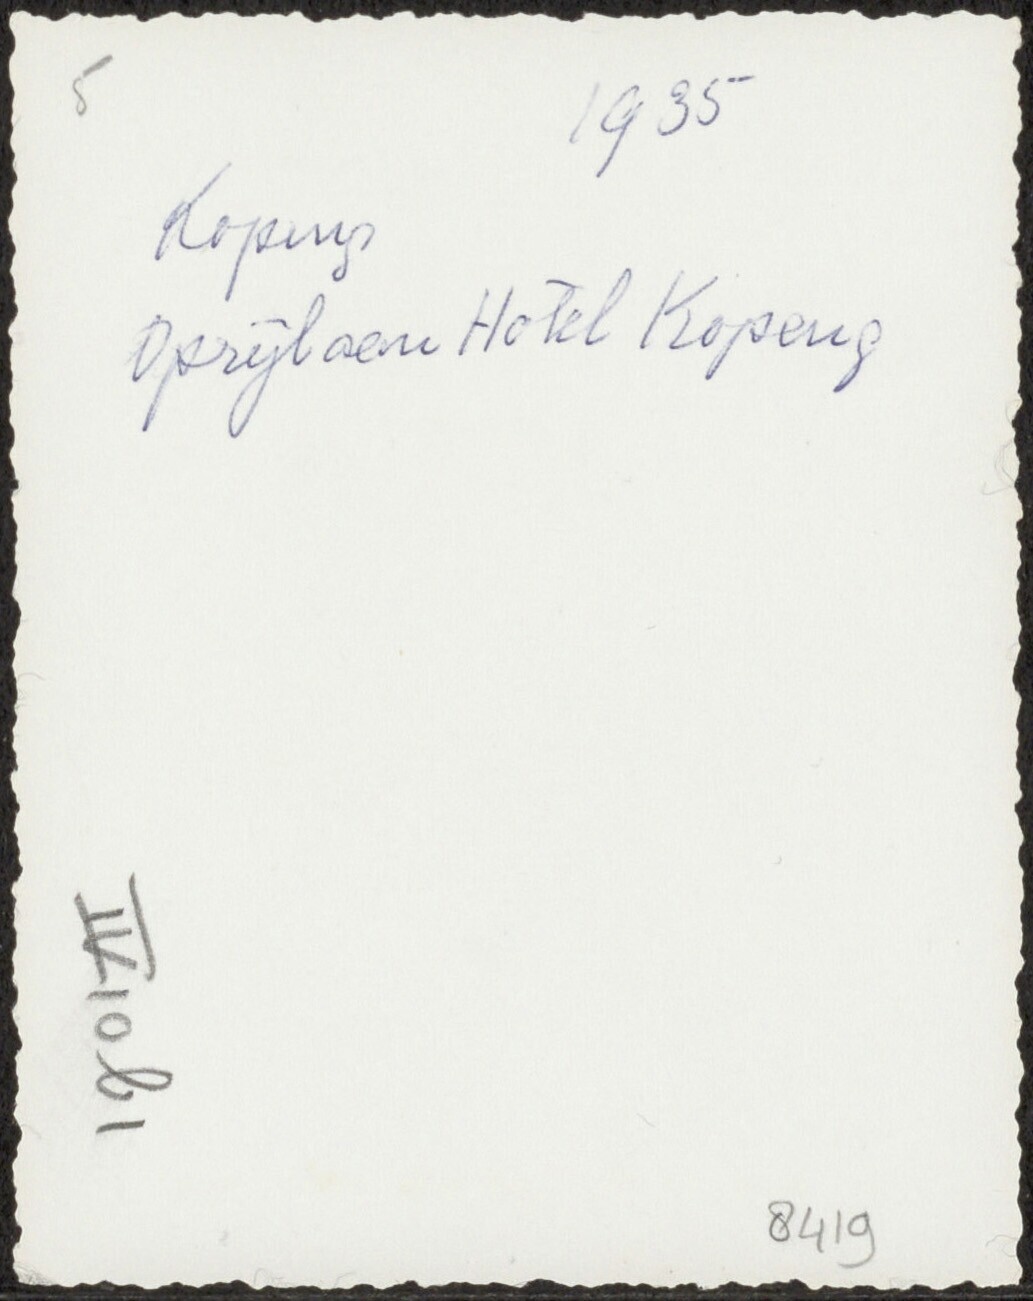 5
1935
Kopeng
Oprijlaan Hotel Kopeng
8419